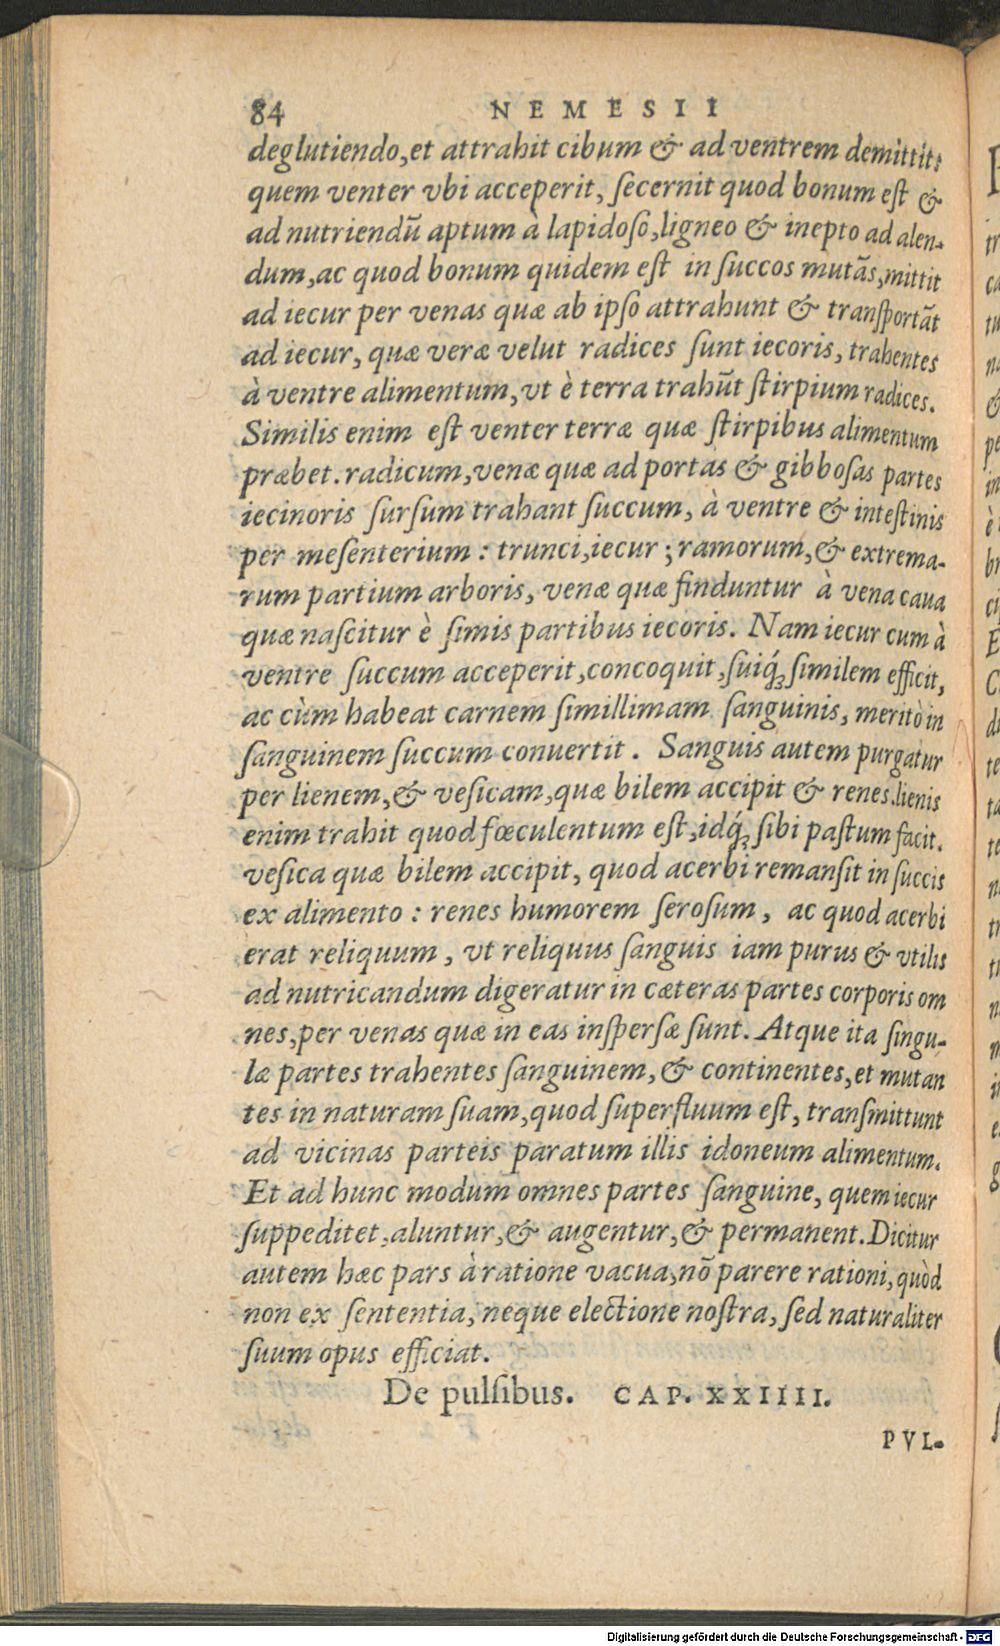 84 NEMESII
deglutiendo,et attrahit cibum & ad ventrem demittit:
quem venter vbi acceperit, ſecernit quod bonum eſt &
ad nutriendū aptum à lapidoſo,ligneo & inepto ad alen-
dum,ac quod bonum quidem eſt in ſuccos mutās,mittit
ad iecur per venas quæ ab ipſo attrahunt & tranſportāt
ad iecur, quæ veræ velut radices ſunt iecoris, trahentes
à ventre alimentum,vt è terra trahūt ſtirpium radices.
Similis enim eſt venter terræ quæ ſtirpibus alimentum
præbet.radicum,venæ quæ ad portas & gibboſas partes
iecinoris ſurſum trahant ſuccum, à ventre & inteſtinis
per meſenterium : trunci,iecur ; ramorum,& extrema-
rum partium arboris, venæ quæ finduntur à vena caua
quæ naſcitur è ſimis partibus iecoris. Nam iecur cum à
ventre ſuccum acceperit,concoquit,ſuiq́; ſimilem efficit,
ac cùm habeat carnem ſimillimam ſanguinis, meritò in
ſanguinem ſuccum conuertit . Sanguis autem purgatur
per lienem,& veſicam,quæ bilem accipit & renes.lienis
enim trahit quod fœculentum eſt,idq́; ſibi paſtum facit.
veſica quæ bilem accipit, quod acerbi remanſit in ſuccis
ex alimento : renes humorem ſeroſum, ac quod acerbi
erat reliquum, vt reliquus ſanguis iam purus & vtilis
ad nutricandum digeratur in cæteras partes corporis om
nes,per venas quæ in eas inſperſæ ſunt. Atque ita ſingu-
læ partes trahentes ſanguinem,& continentes,et mutan
tes in naturam ſuam,quod ſuperfluum eſt, tranſmittunt
ad vicinas parteis paratum illis idoneum alimentum.
Et ad hunc modum omnes partes ſanguine, quem iecur
ſuppeditet,aluntur,& augentur,& permanent. Dicitur
autem hæc pars à ratione vacua,nō parere rationi,quòd
non ex ſententia, neque electione noſtra, ſed naturaliter
ſuum opus efficiat.
De pulſibus. CAP. XXIIII.
PVL-
Digitalisierung gefördert durch die Deutsche Forschungsgemeinschaft - DFG